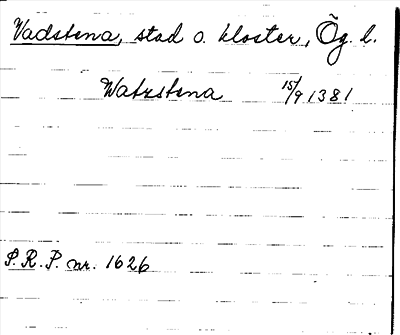 Vadstena, stad o. kloster, Ög. l.
Watzstena 15/9 1381
S.R.P. nr. 1626